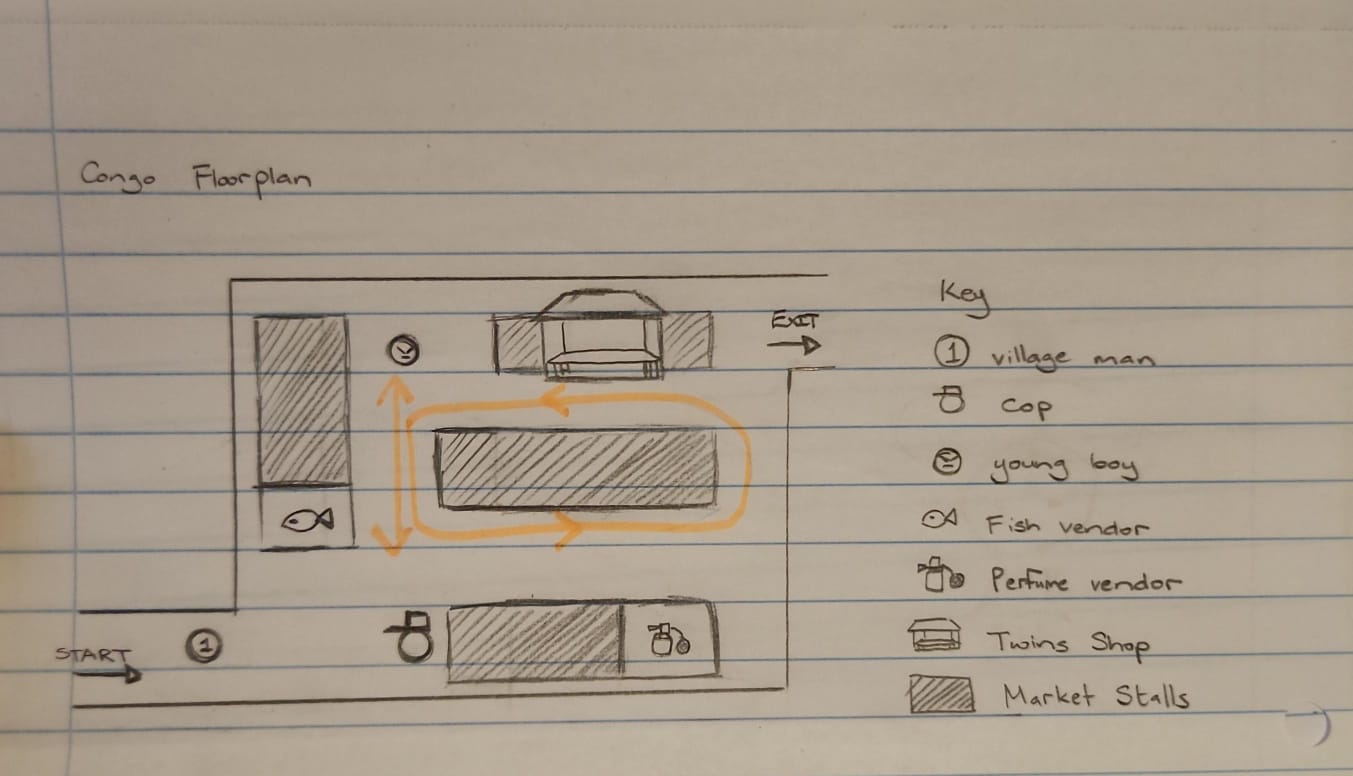 Congo Floorplan
EXIT
START
1
Key
1 village man
Cop
young boy
Fish vendor
Perfume vendor
Twins Shop
Market Stalls